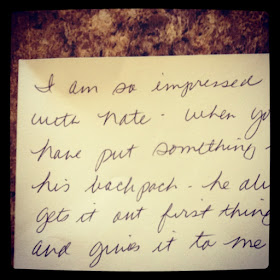 I am so impressed
with Nate - When yo
have put something -
his backpack - he alw
gets it out first thing
and gives it to me